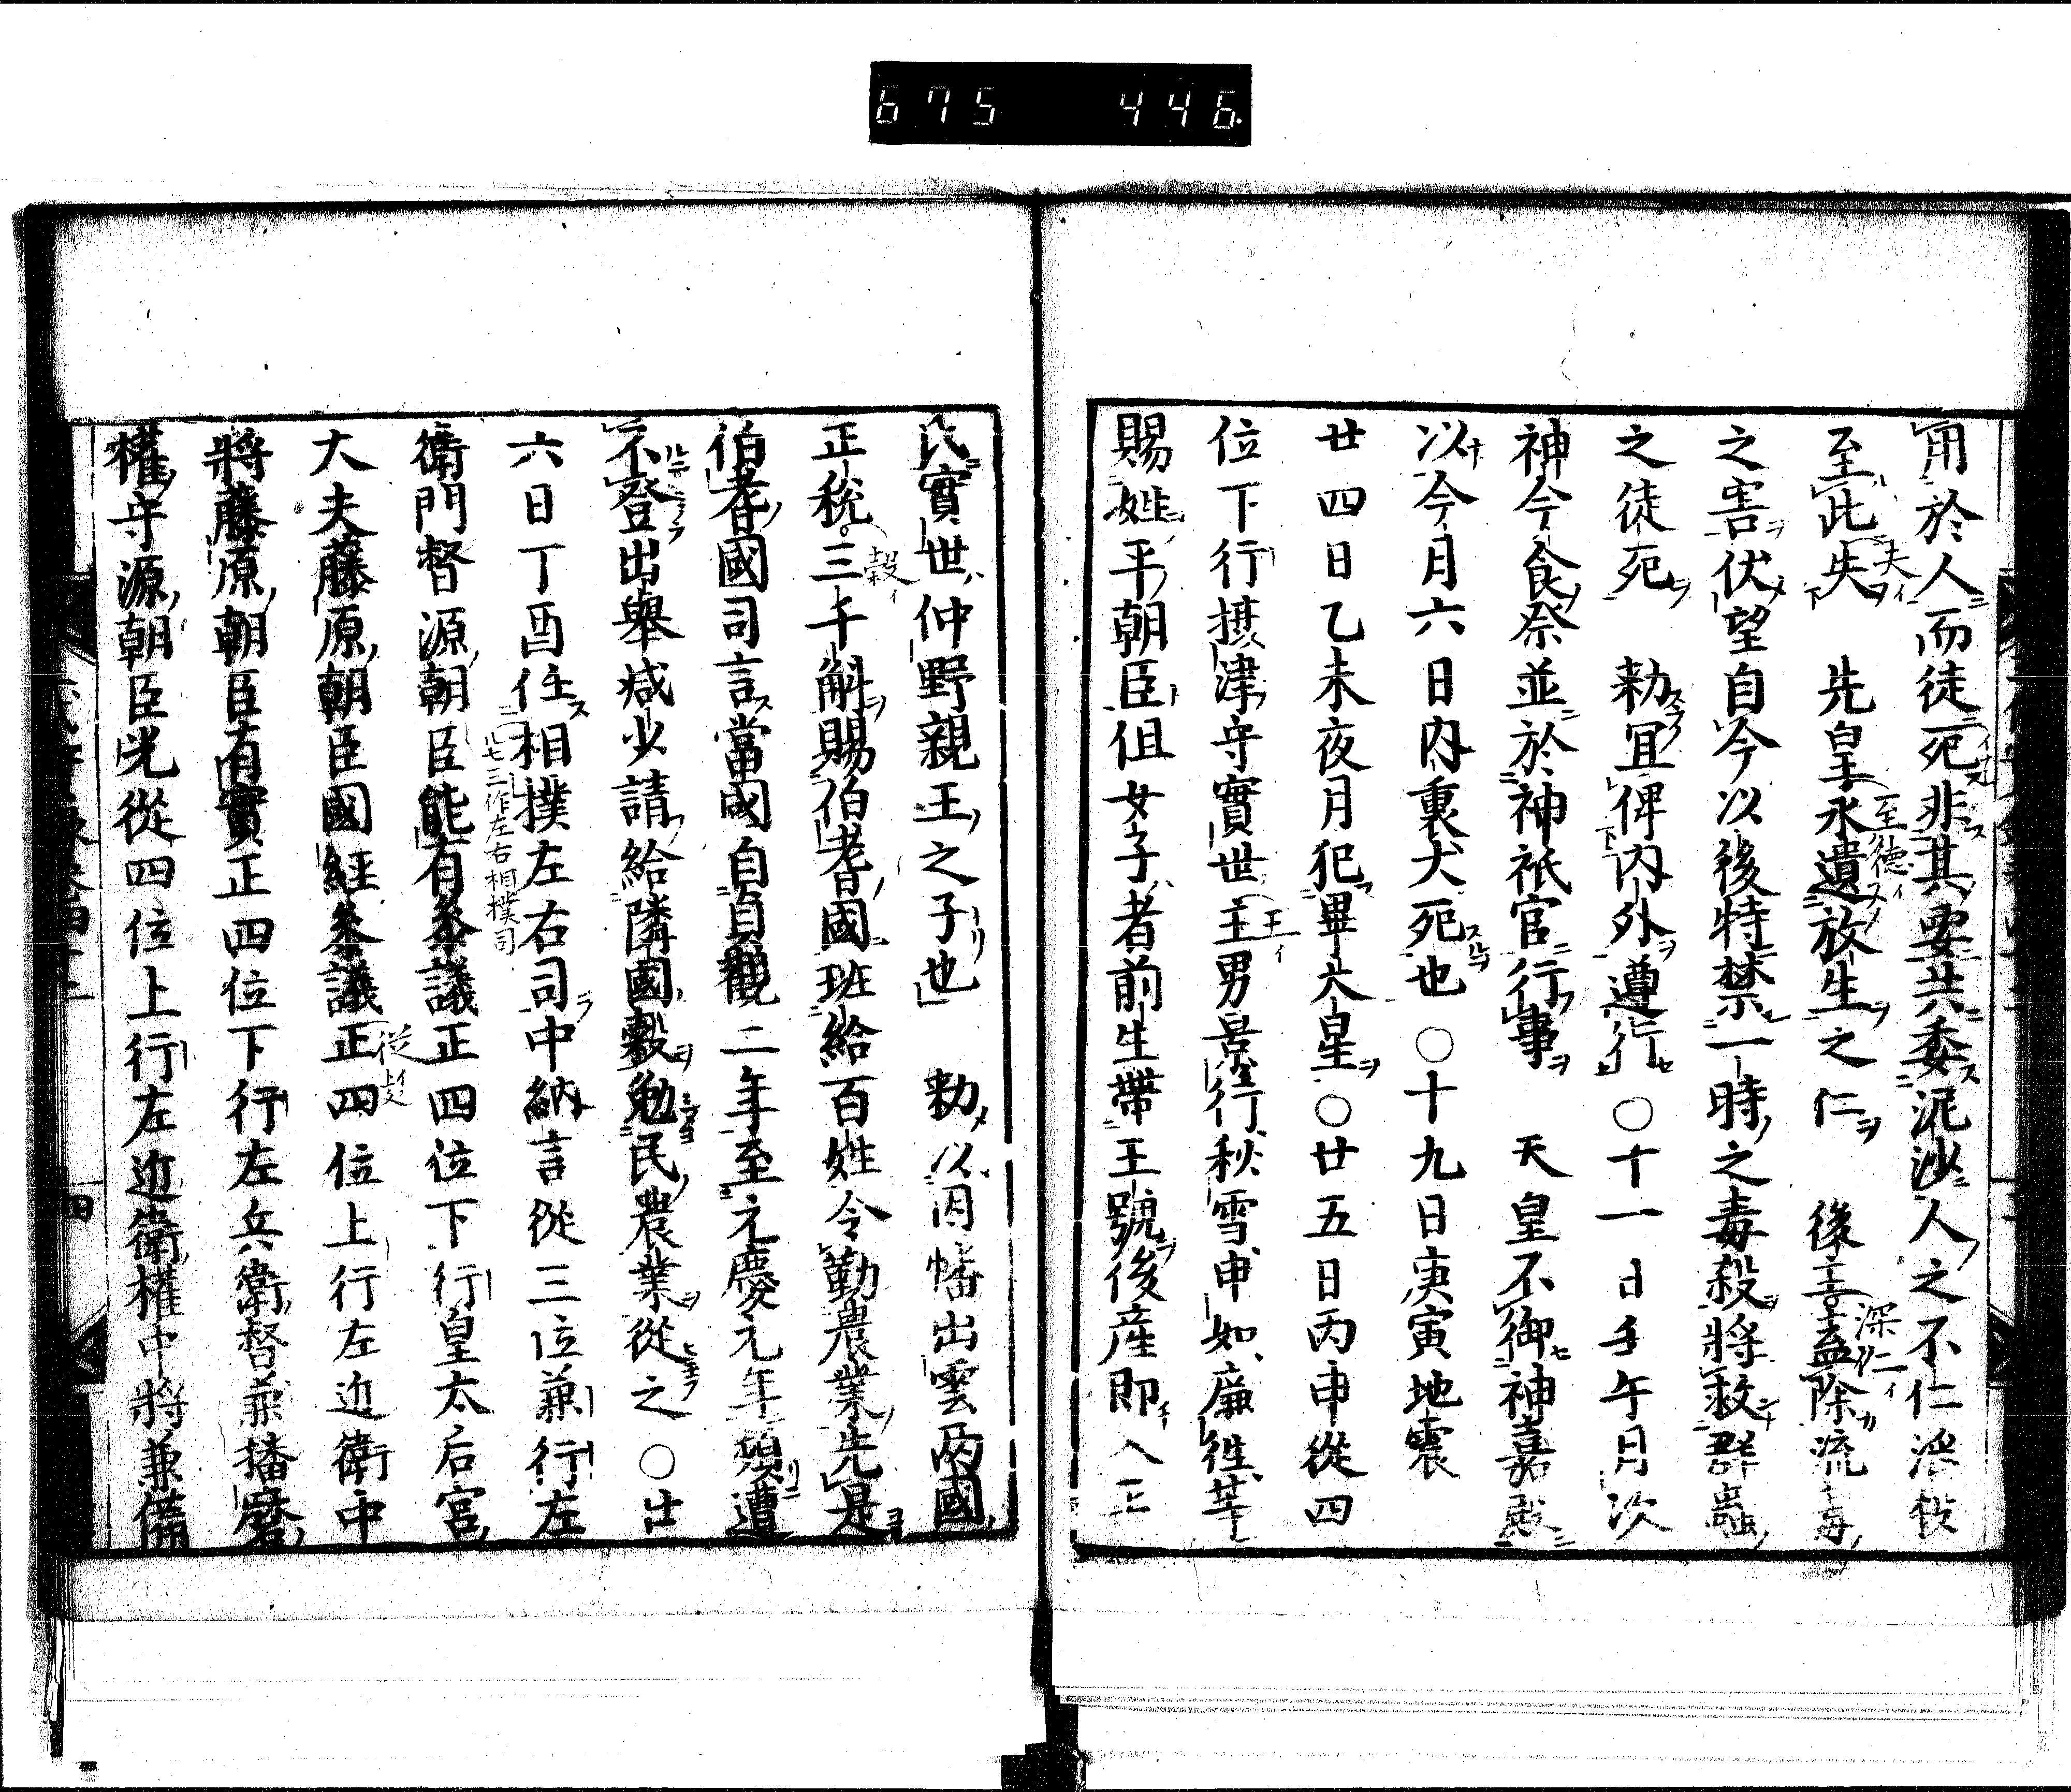 675 446
用於人而徒死非其要共委泥沙人之不仁淫
至此失 先皇永遺放生之仁 後主盍除流毒
之害伏望自今以後特禁一時之毒殺將救群蟲
之徒死 勅宜俾内外遵行〇十一日壬午月次
神今食祭並於神祇官行事 天皇不御神嘉殿
以今月六日内裏犬死也〇十九日庚寅地震
廿四日乙未夜月犯畢大星〇廿五日丙申從四
位下行攝津守實世王男景行秋雪申如廉徃莖
賜姓平朝臣但女子者前生帶王號後産即入王
氏實世仲野親王之子也 勅以因幡出雲兩國
正税三千斛賜伯耆國班給百姓令勤農業先是
伯耆國司言當國自貞觀二年至元慶元年頻遭
不登出舉減少請給隣國穀勉民農業從之〇廿
六日丁酉任相撲左右司中納言從三位兼行左
衛門督源朝臣能有參議正四位下行皇太后宮
大夫藤原朝臣國經參議正四位上行左近衛中
將藤原朝臣有實正四位下行左兵衛督兼播磨
權守源朝臣光從四位上行左近衛權中將兼備